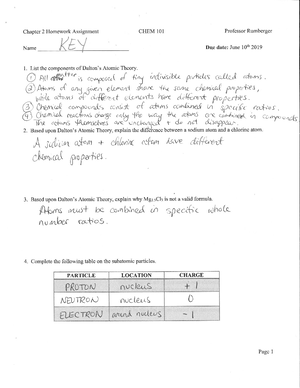 Chapter 2 Homework Assignment CHEM 101 Professor Rumberger
Name KEY Due date: June 10th 2019
1. List the components of Dalton's Atomic Theory.
① All matter is composed of tiny indivisible particles called atoms.
② Atoms of any given element share the same chemical properties,
while atoms of different elements have different properties.
③ Chemical compounds consist of atoms combined in specific ratios.
④ Chemical reactions change only the way the atoms are combined in compounds
The atoms themselves are unchanged + do not disappear.
2. Based upon Dalton's Atomic Theory, explain the difference between a sodium atom and a chlorine atom.
A sodium atom + chlorine atom have different
chemical properties.
3. Based upon Dalton's Atomic Theory, explain why Mg₁.₅Cl₃ is not a valid formula.
Atoms must be combined in specific whole
number ratios.
4. Complete the following table on the subatomic particles.
PARTICLE LOCATION CHARGE
PROTON nucleus +1
NEUTRON nucleus 0
ELECTRON around nucleus -1
Page 1